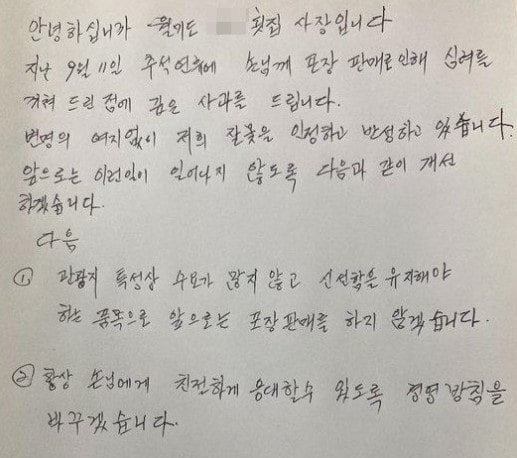 안녕하십니까 월미도 횟집 사장입니다
지난 9월 11일 추석연휴에 손님께 포장 판매로 인해 심려를
끼쳐 드린 점에 깊은 사과를 드립니다.
변명의 여지없이 저희 잘못을 인정하고 반성하고 있습니다.
앞으로는 이런일이 일어나지 않도록 다음과 같이 개선
하겠습니다.
다음
① 관광지 특성상 수요가 많지 않고 신선함을 유지해야
하는 품목으로 앞으로는 포장판매를 하지 않겠습니다.
② 항상 손님에게 친절하게 응대할수 있도록 경영방침을
바꾸겠습니다.